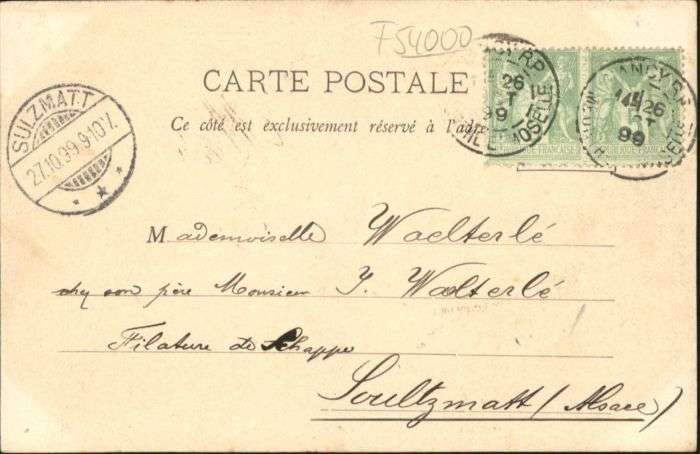 F54000
CARTE POSTALE
Ce côté est exclusivement réservé à l'adre
SULZMATT
27.10.99.9-10V.
26
99
MOSELLE
NANCY
26
99
Mademoiselle Waelterlé
chez son père Monsieur J. Waelterlé
Filature de Schappe
Soultzmatt (Alsace)